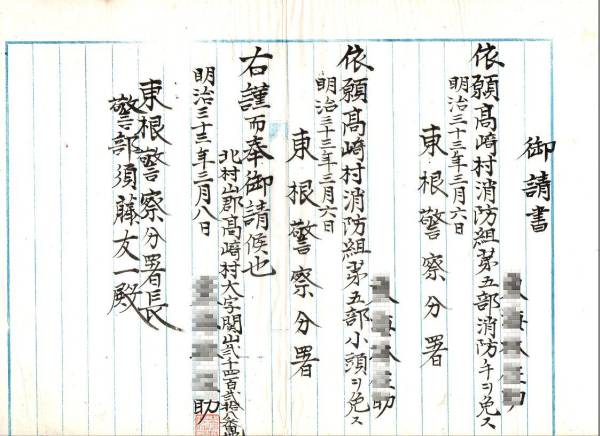 御請書
助
依願高﨑村消防組第五部消防手ヲ免ス
明治三十三年三月六日
東根警察分署
助
依願高﨑村消防組第五部小頭ヲ免ス
明治三十三年三月六日
東根警察分署
右謹而奉御請候也
北村山郡高﨑村大字関山弐千四百弐拾八番地
助
明治三十三年三月八日
東根警察分署長
警部須藤友一殿